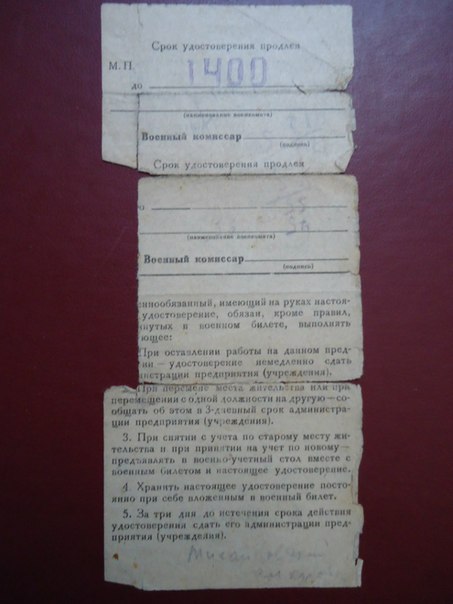 Срок удостоверения продлен
М. П.
1400
до
(наименование военкомата)
Военный комиссар
(подпись)
Срок удостоверения продлен
о
(наименование военкомата)
Военный комиссар
(подпись)
еннообязанный, имеющий на руках настоя-
удостоверение, обязан, кроме правил,
нутых в военном билете, выполнять
ющее:
При оставлении работы на данном пред-
ии — удостоверение немедленно сдать
нистрации предприятия (учреждения).
При перемене места жительства или при
перемещении с одной должности на другую — со-
общать об этом в 3-дневный срок администра-
ции предприятия (учреждения).
3. При снятии с учета по старому месту жи-
тельства и при принятии на учет по новому —
предъявлять в военно-учетный стол вместе с
военным билетом и настоящее удостоверение.
4. Хранить настоящее удостоверение посто-
янно при себе вложенным в военный билет.
5. За три дня до истечения срока действия
удостоверения сдать его администрации пред-
приятия (учреждения).